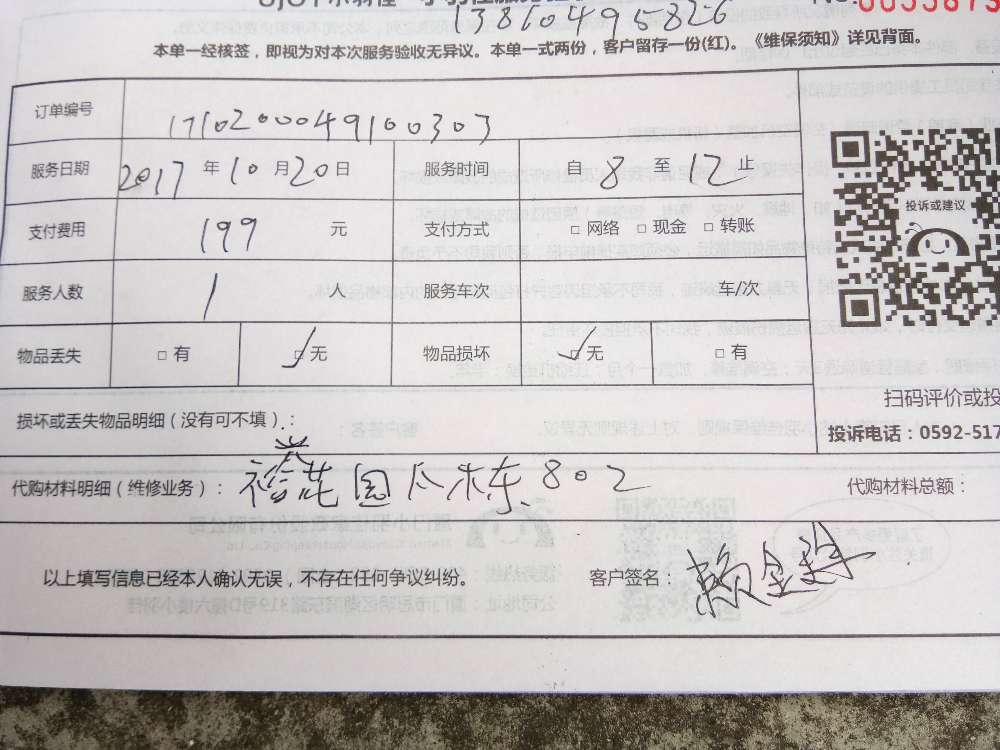 13860495826
本单一经核签，即视为对本次服务验收无异议。本单一式两份，客户留存一份(红)。《维保须知》详见背面。
订单编号 17102000049100303
服务日期 2017 年 10 月 20 日 服务时间 自 8 至 12 止
支付费用 199 元 支付方式 □ 网络 □ 现金 □ 转账
投诉或建议
服务人数 1 人 服务车次 车/次
物品丢失 □ 有 □ 无 物品损坏 □ 无 □ 有
扫码评价或投
损坏或丢失物品明细（没有可不填）:
投诉电话：0592-517
代购材料明细（维修业务）: 园 东 802 代购材料总额：
以上填写信息已经本人确认无误，不存在任何争议纠纷。 客户签名：赖金